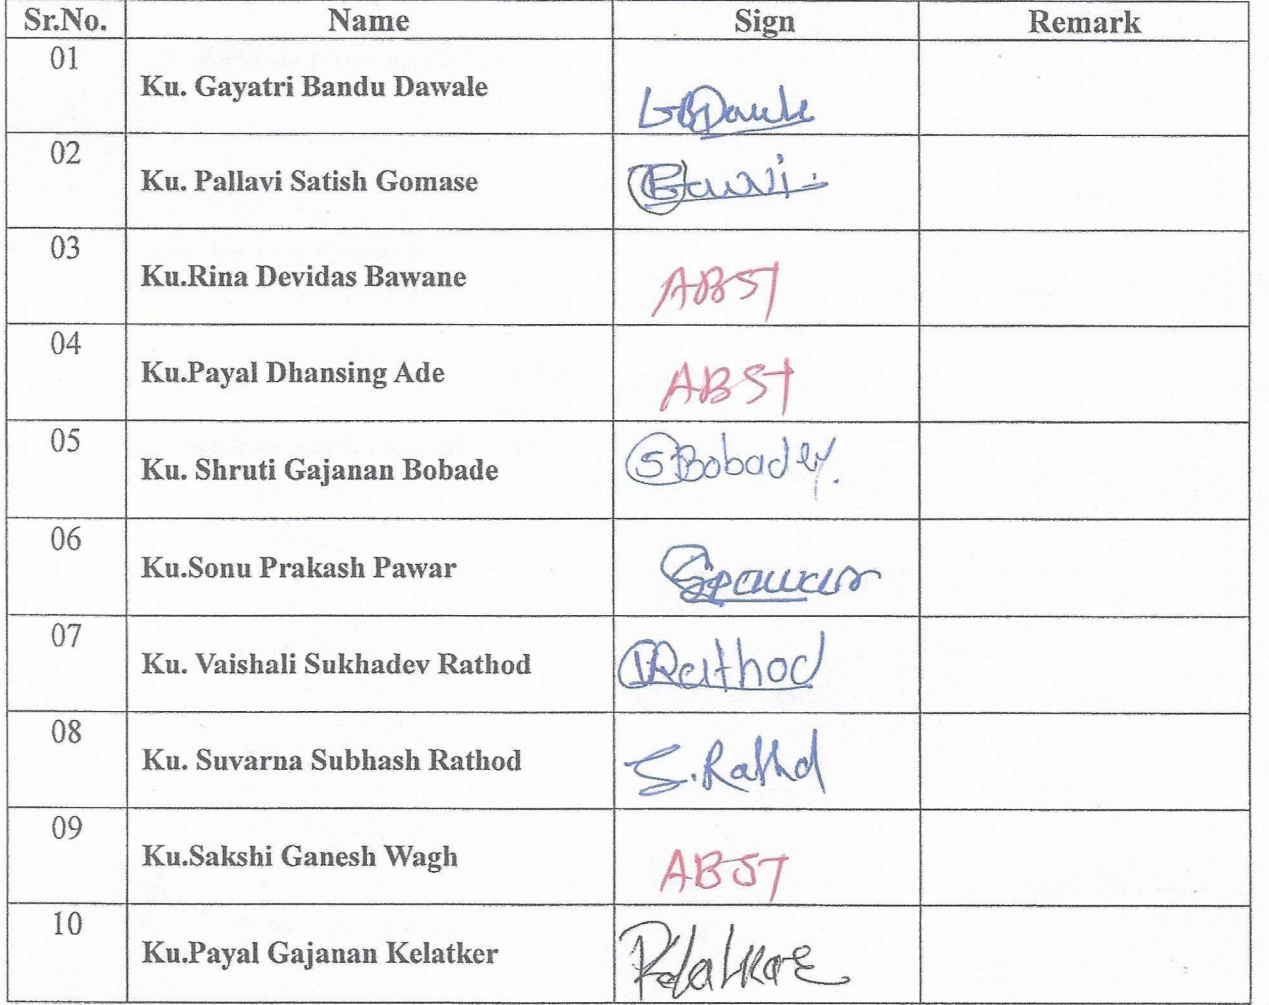 Sr.No. Name Sign Remark
01 Ku. Gayatri Bandu Dawale GBDawle
02 Ku. Pallavi Satish Gomase
03 Ku.Rina Devidas Bawane ABST
04 Ku.Payal Dhansing Ade ABST
05 Ku. Shruti Gajanan Bobade SBobade
06 Ku.Sonu Prakash Pawar Spawar
07 Ku. Vaishali Sukhadev Rathod Rathod
08 Ku. Suvarna Subhash Rathod S.Rathod
09 Ku.Sakshi Ganesh Wagh ABST
10 Ku.Payal Gajanan Kelatker